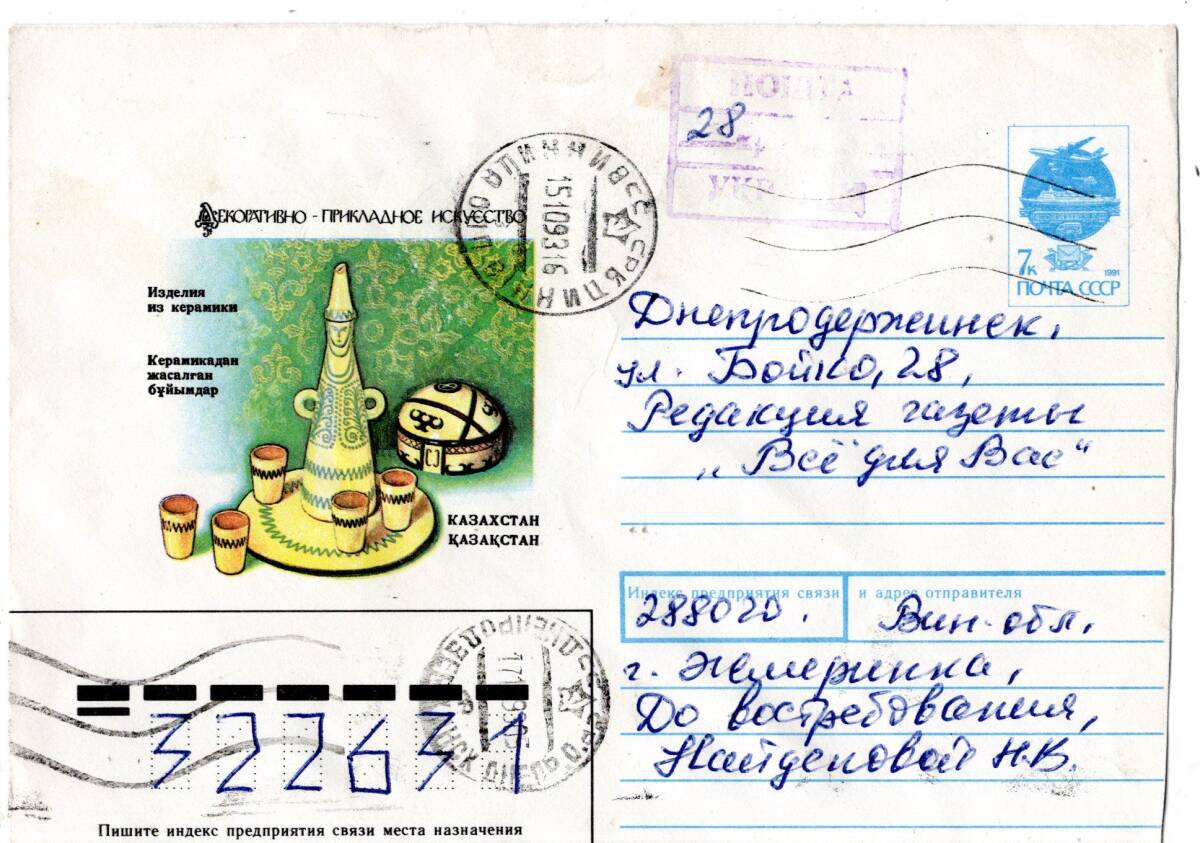 28
7к
1991
ПОЧТА СССР
ДЕКОРАТИВНО - ПРИКЛАДНОЕ ИСКУССТВО
15109316
Изделия
из керамики
Керамикадан
жасалған
бұйымдар
КАЗАХСТАН
ҚАЗАҚСТАН
Днепродержинск,
ул. Бойко, 28,
Редакция газеты
„Всё для Вас“
Индекс предприятия связи и адрес отправителя
288020. Вин. обл.
г. Жмеринка,
До востребования,
Найденовой Н.В.
322631
Пишите индекс предприятия связи места назначения